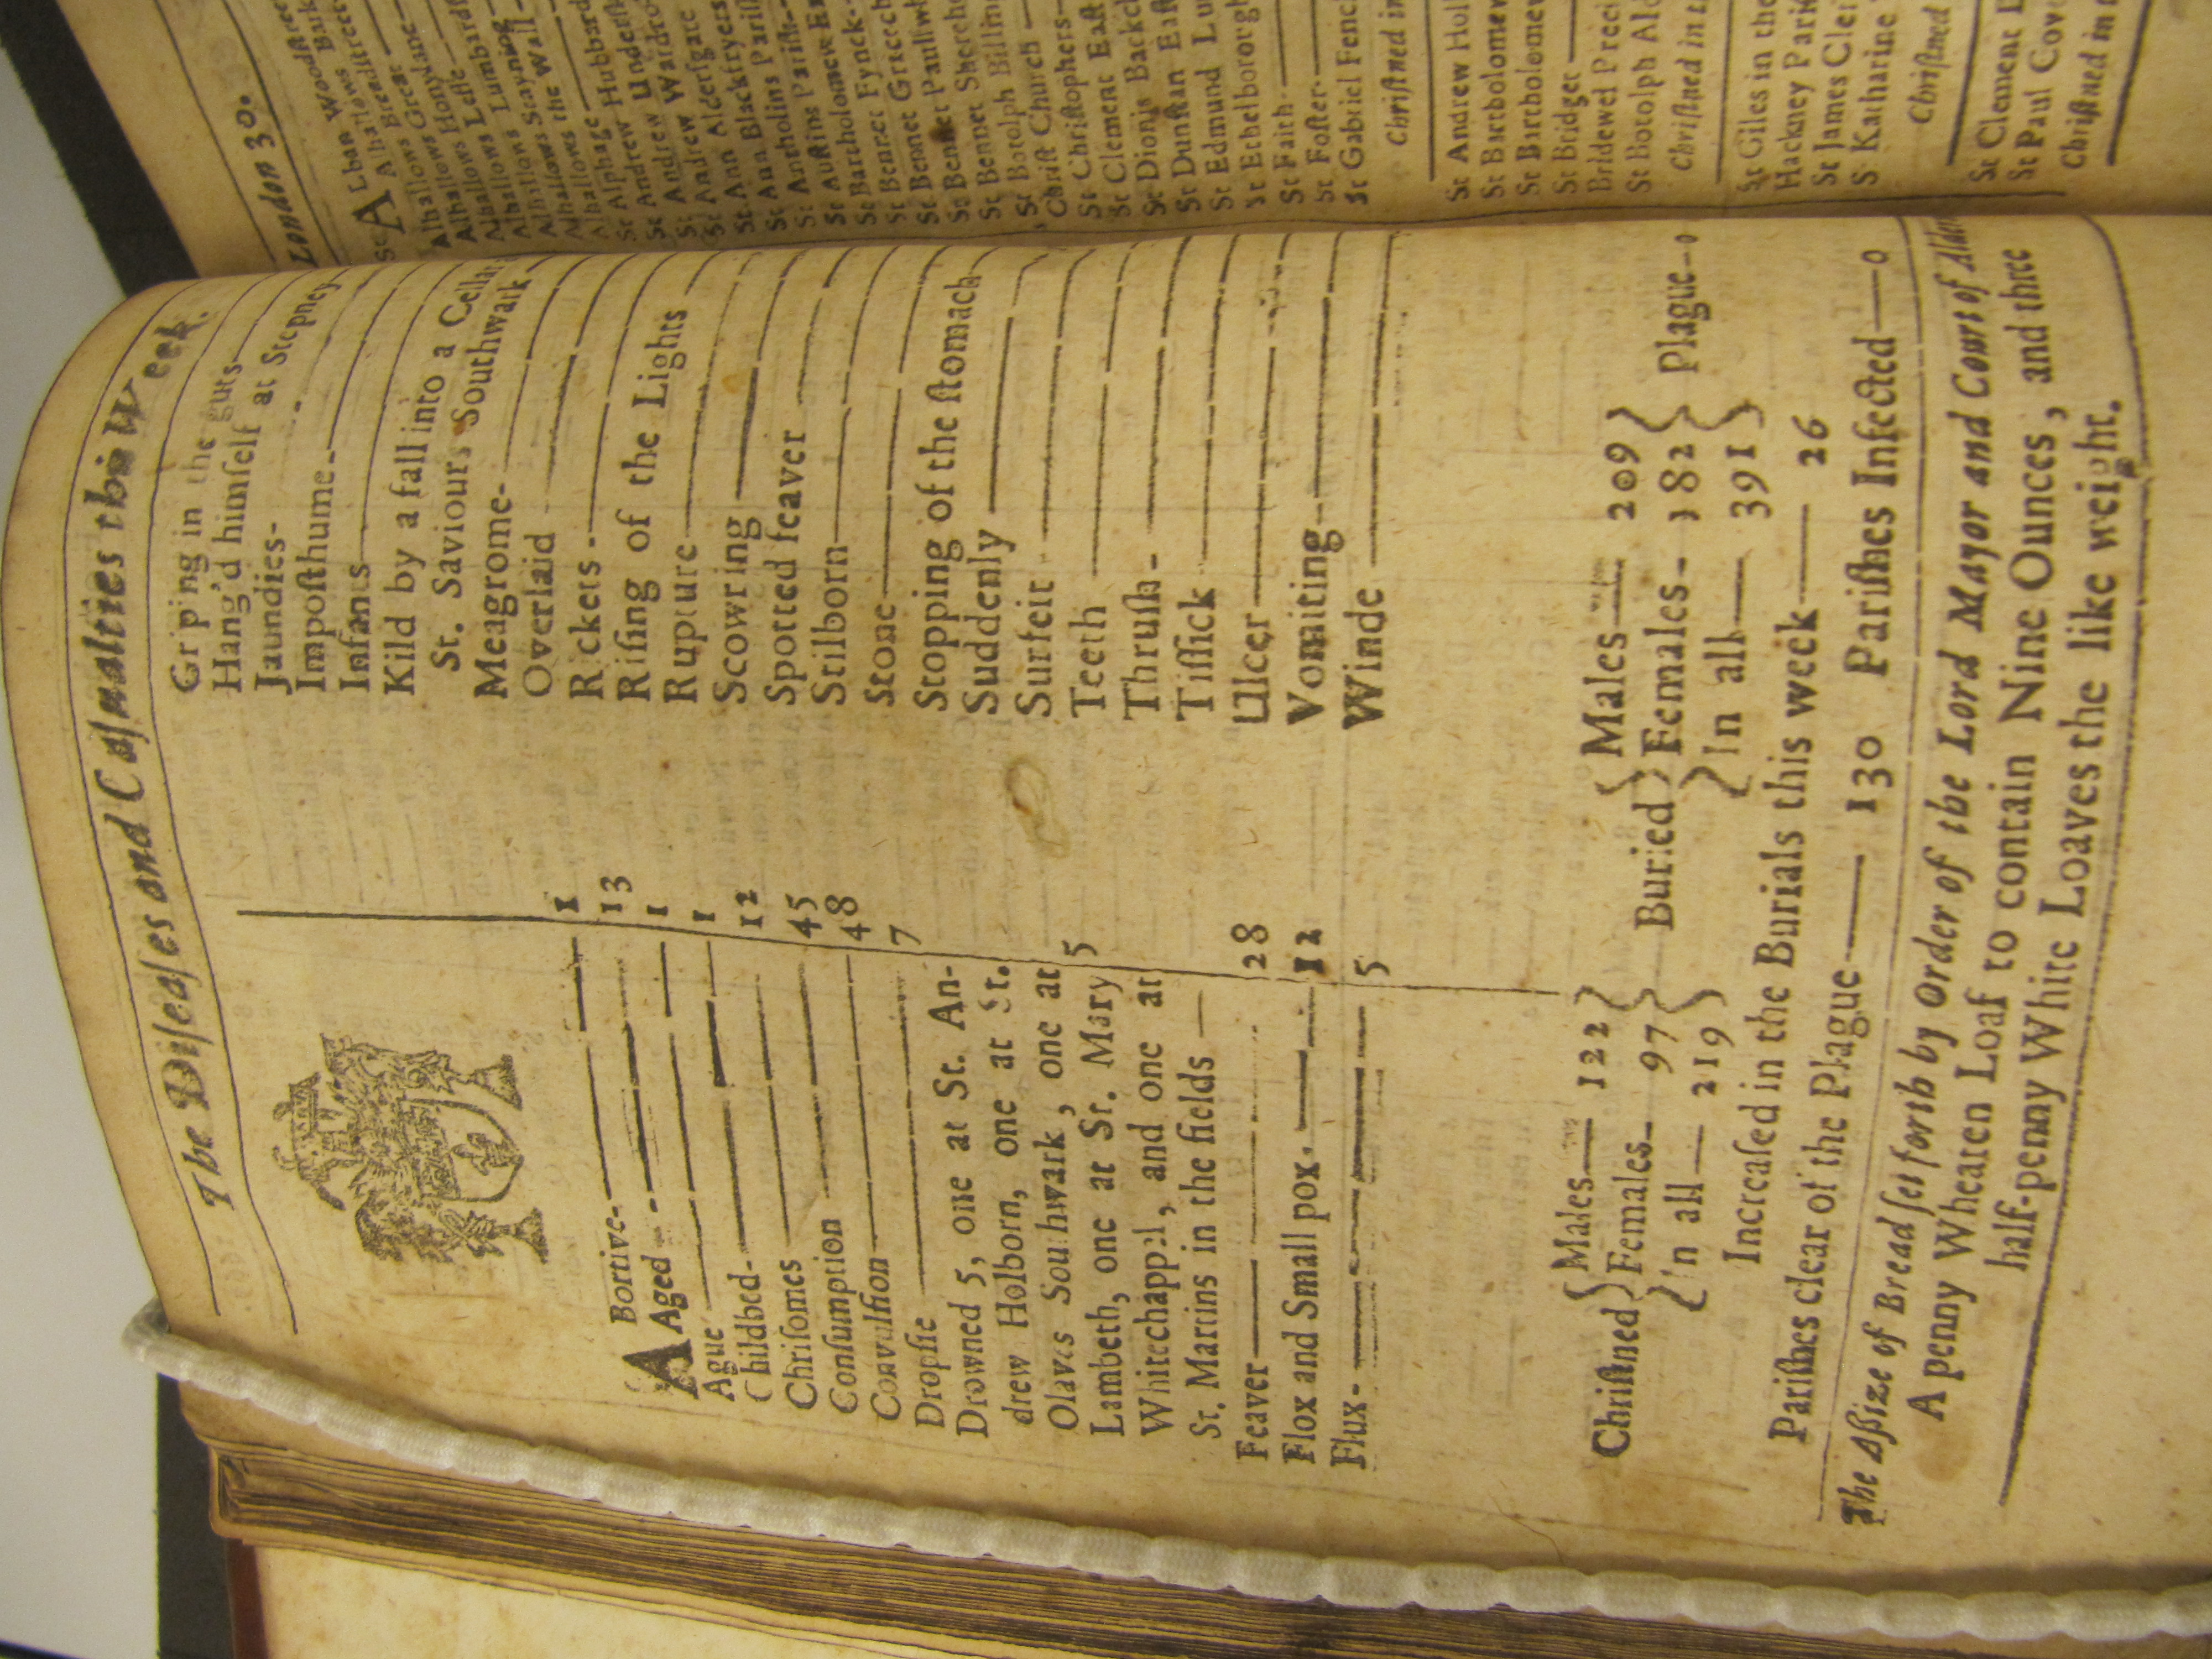 The Diseases and Casualties this Week.
ABortive 1
Aged 13
Ague 1
Childbed 1
Chrisomes 12
Consumption 45
Convulsion 48
Dropsie 7
Drowned 5, one at St. An-
drew Holborn, one at St.
Olaves Southwark, one at
Lambeth, one at St. Mary
Whitechappel, and one at
St. Martins in the fields 5
Feaver 28
Flox and Small pox. 12
Flux 5
Griping in the guts
Hang'd himself at Stepney
Jaundies
Imposthume
Infants
Kild by a fall into a Cellar
St. Saviours Southwark
Meagrome
Overlaid
Rickets
Rising of the Lights
Rupture
Scowring
Spotted feaver
Stilborn
Stone
Stopping of the stomach
Suddenly
Surfeit
Teeth
Thrush
Tissick
Ulcer
Vomiting
Winde
Christned { Males 122 } Buried { Males 209 } Plague 0
{ Females 97 } { Females 182 }
{ In all 219 } { In all 391 }
Increased in the Burials this week 26
Parishes clear of the Plague 130 Parishes Infected 0
The Assize of Bread set forth by Order of the Lord Mayor and Court of
A penny Wheaten Loaf to contain Nine Ounces, and three
half-penny White Loaves the like weight.
London 30.
St ALban Woodstreet
Alhallows Bark
Alhallows Breadstreet
Alhallows Great
Alhallows Honylane
Alhallows Lesse
Alhallows Lumbard
Alhallows Stayning
Alhallows the Wall
Alphage
St Andrew Hubbard
St Andrew Undersh
St Andrew Wardro
St Ann Aldersgate
St Ann Blackfryers
St Antholins Parish
St Austins Parish
St Bartholomew Ex
St Bennet Fynck
St Bennet Gracech
St Bennet Paulswh
St Bennet Sherehog
St Botolph Billing
Christ Church
St Christophers
St Clement East
St Dionis Backch
St Dunstan East
St Edmund Lu
St Ethelborough
St Faith
St Foster
St Gabriel Fench
Christned in
St Andrew Hol
St Bartholomew
St Bartholomew
St Bridget
Bridewel Preci
St Botolph Ald
Christned in
St Giles in the
Hackney Pari
St James Cler
St Katharine
Christned
St Clement D
St Paul Cov
Christned in